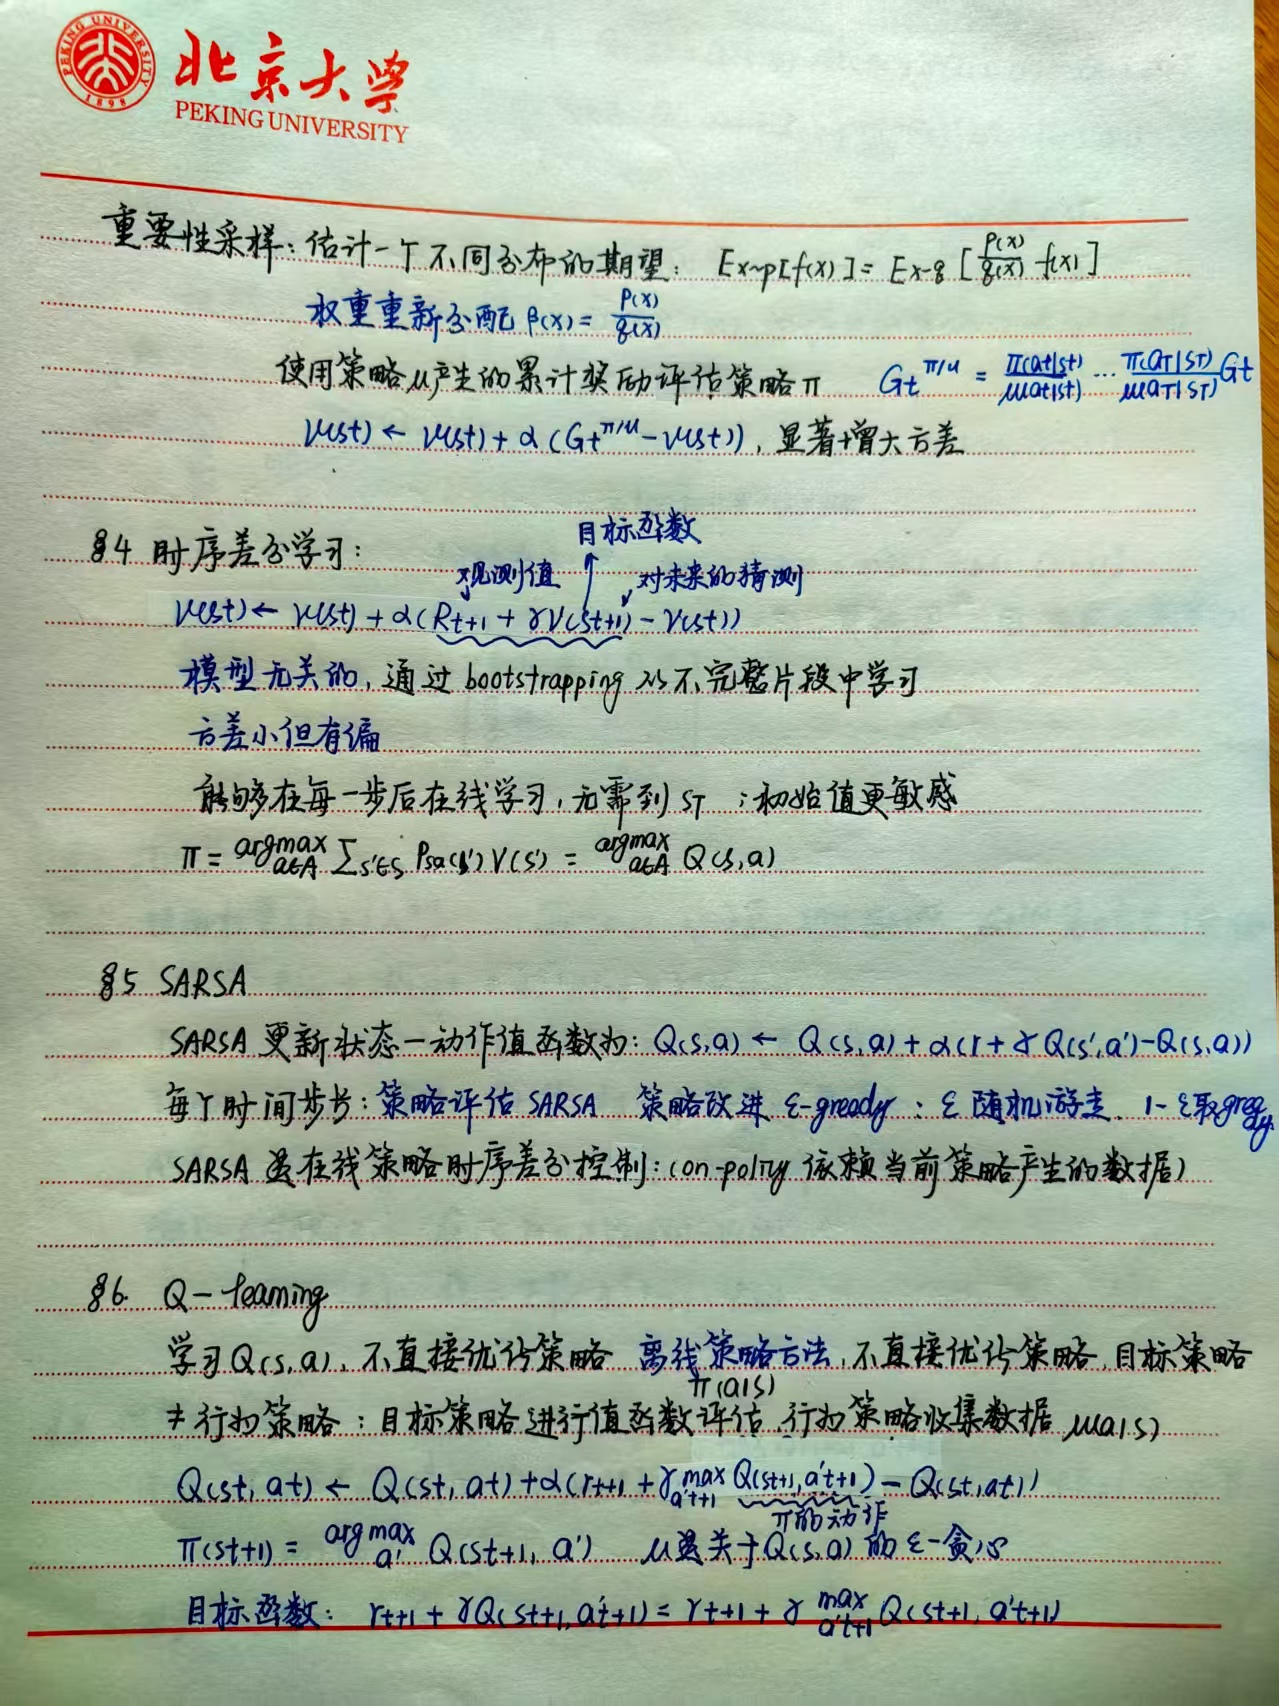 北京大学
PEKING UNIVERSITY
PEKING UNIVERSITY
1898
重要性采样：估计一个不同分布的期望： Ex~p[f(x)] = Ex~q [p(x)/q(x) f(x)]
权重重新分配 β(x) = p(x)/q(x)
使用策略μ产生的累计奖励评估策略π Gt^π/μ = π(at|st)/μ(at|st) ... π(aT|sT)/μ(aT|sT) Gt
V(st) ← V(st) + α (Gt^π/μ - V(st))，显著增大方差
目标函数
§4 时序差分学习：
观测值 对未来的猜测
V(st) ← V(st) + α(Rt+1 + γV(st+1) - V(st))
模型无关的，通过 bootstrapping 从不完整片段中学习
方差小但有偏
能够在每一步后在线学习，无需到 ST ；初始值更敏感
π = argmax a∈A Σs'∈S Psa(s') V(s') = argmax a∈A Q(s,a)
§5 SARSA
SARSA 更新状态-动作值函数为：Q(s,a) ← Q(s,a) + α(r + γ Q(s',a') - Q(s,a))
每个时间步长：策略评估 SARSA 策略改进 ε-gready：ε 随机游走，1-ε取gready
SARSA 是在线策略时序差分控制：(on-policy 依赖当前策略产生的数据)
§6. Q-learning
学习Q(s,a)，不直接优化策略 离线策略方法，不直接优化策略，目标策略
π(a|s)
≠ 行为策略：目标策略进行值函数评估，行为策略收集数据 μ(a|s)
Q(st, at) ← Q(st, at) + α(rt+1 + γ max a't+1 Q(st+1, a't+1) - Q(st, at))
π的动作
π(st+1) = argmax a' Q(st+1, a') μ是关于Q(s,a)的 ε-贪心
目标函数： rt+1 + γQ(st+1, a't+1) = rt+1 + γ max a't+1 Q(st+1, a't+1)